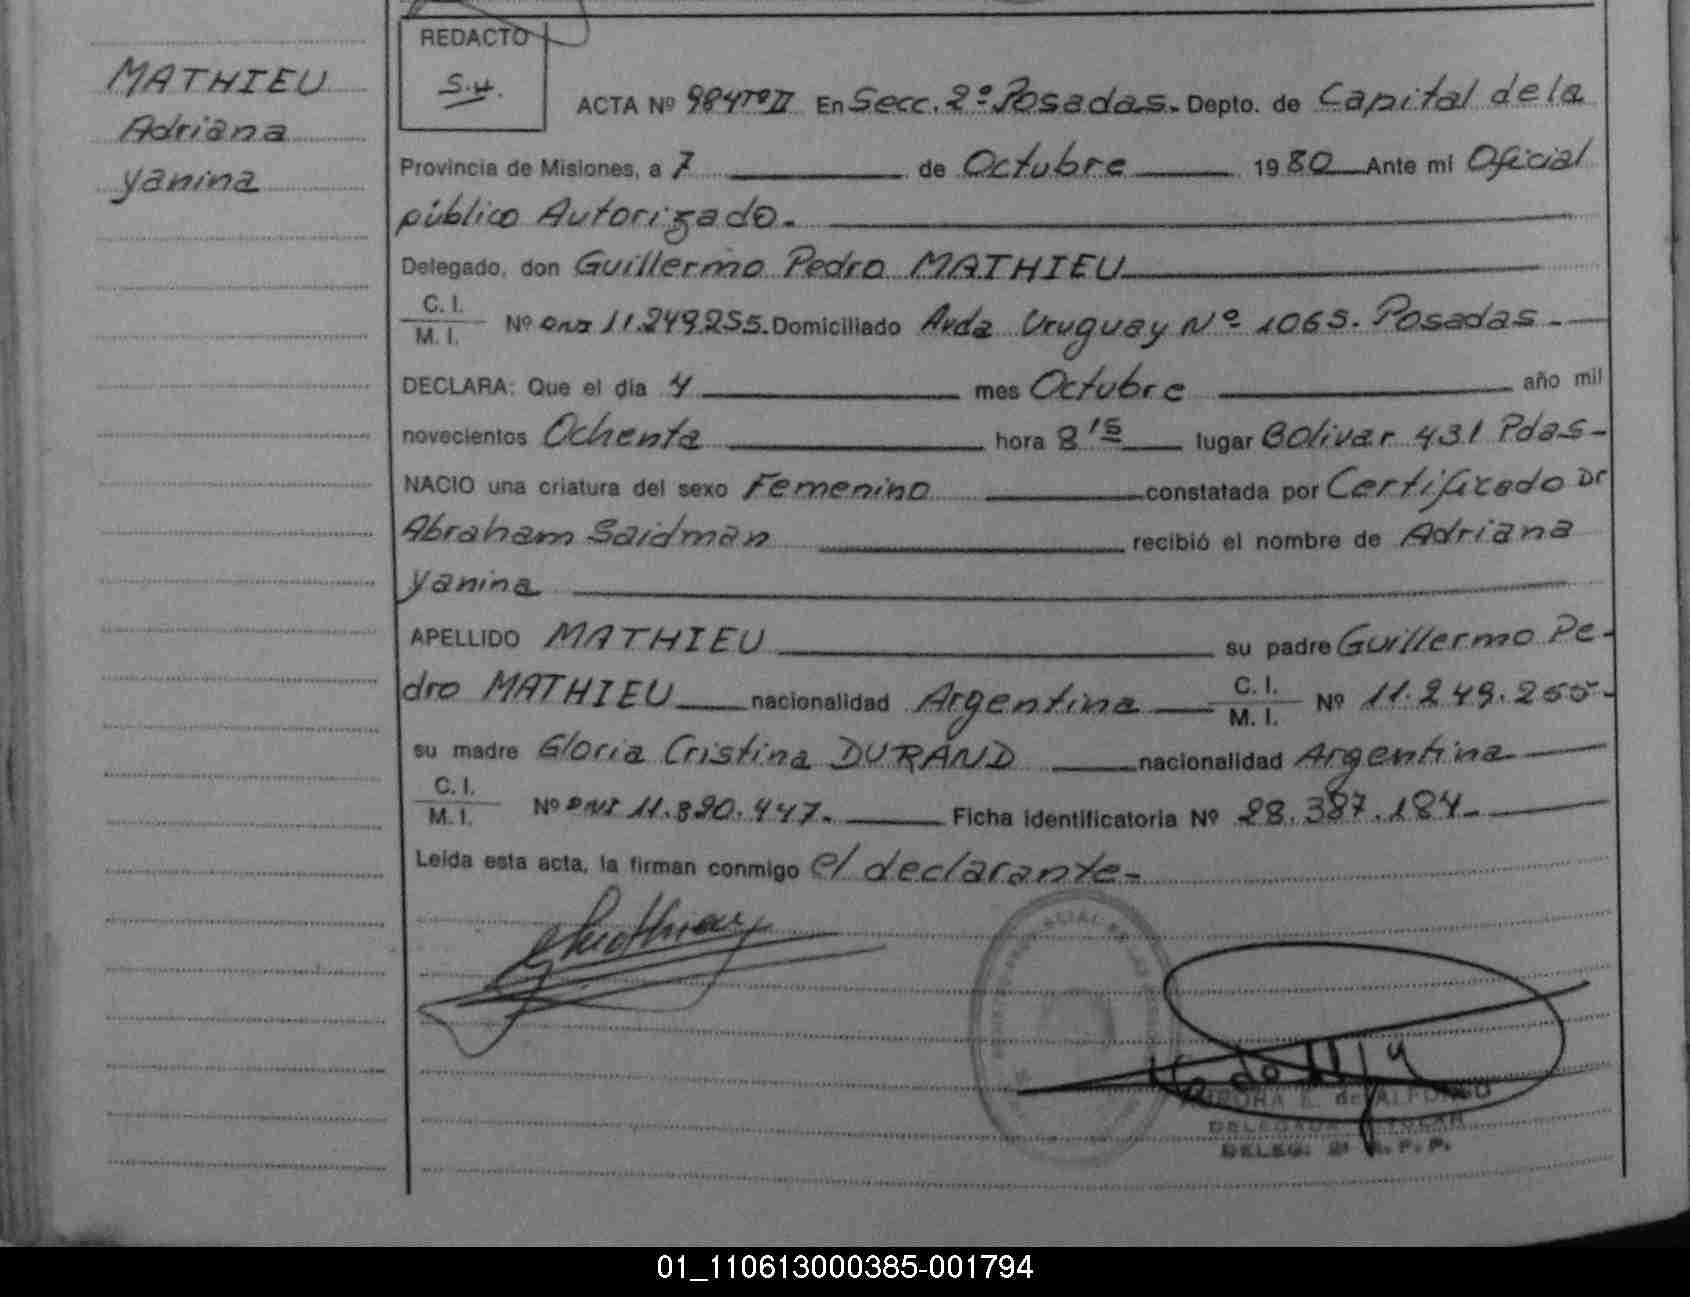 MATHIEU
Adriana
yanina
REDACTO
S.H.
ACTA Nº 984 Tº II En Secc. 2º Posadas.- Depto. de Capital de la
Provincia de Misiones, a 7 de Octubre 1980 Ante mi Oficial
público Autorizado.-
Delegado, don Guillermo Pedro MATHIEU
C. I.
M. I.
Nº DNI 11.249.255. Domiciliado Avda Uruguay Nº 1065. Posadas.-
DECLARA: Que el día 4 mes Octubre año mil
novecientos Ochenta hora 8 15 lugar Bolivar 431 Pdas-
NACIO una criatura del sexo Femenino constatada por Certificado Dr
Abraham Saidman recibió el nombre de Adriana
yanina
APELLIDO MATHIEU su padre Guillermo Pe-
dro MATHIEU nacionalidad Argentina C. I. M. I. Nº 11.249.255-
su madre Gloria Cristina DURAND nacionalidad Argentina
C. I.
M. I.
Nº DNI 11.890.447.- Ficha identificatoria Nº 28.387.184.-
Leída esta acta, la firman conmigo el declarante.-
AURORA E. de ALFONSO
DELEGADA TITULAR
DELEG.
01_110613000385-001794